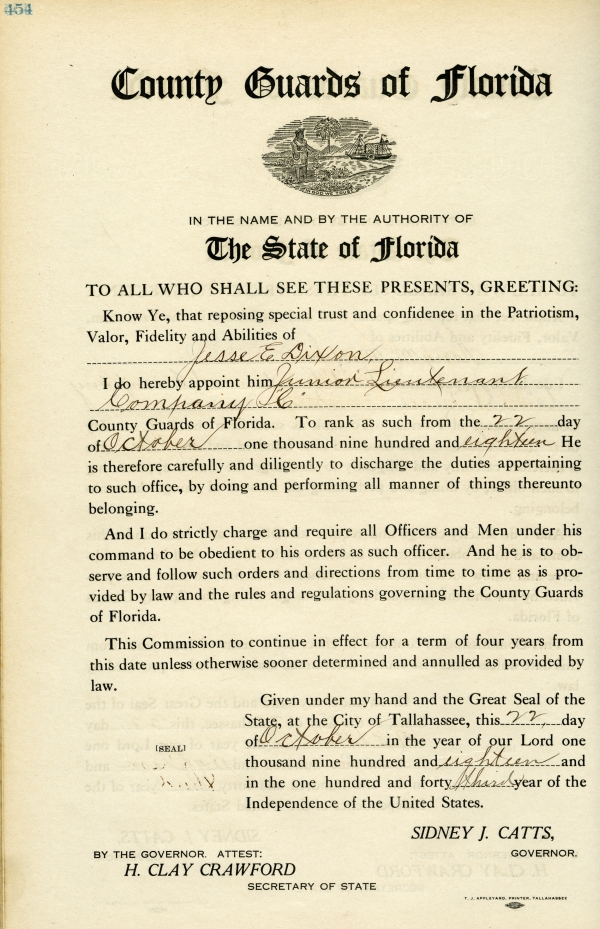 454
County Guards of Florida
IN THE NAME AND BY THE AUTHORITY OF
The State of Florida
TO ALL WHO SHALL SEE THESE PRESENTS, GREETING:
Know Ye, that reposing special trust and confidenee in the Patriotism,
Valor, Fidelity and Abilities of
Jesse E. Dixon
I do hereby appoint him Junior Lieutenant
Company
County Guards of Florida. To rank as such from the 22 day
of October one thousand nine hundred and eighteen He
is therefore carefully and diligently to discharge the duties appertaining
to such office, by doing and performing all manner of things thereunto
belonging.
And I do strictly charge and require all Officers and Men under his
command to be obedient to his orders as such officer. And he is to ob-
serve and follow such orders and directions from time to time as is pro-
vided by law and the rules and regulations governing the County Guards
of Florida.
This Commission to continue in effect for a term of four years from
this date unless otherwise sooner determined and annulled as provided by
law.
Given under my hand and the Great Seal of the
State, at the City of Tallahassee, this 22 day
of October in the year of our Lord one
[SEAL]
thousand nine hundred and eighteen and
in the one hundred and forty third year of the
Independence of the United States.
SIDNEY J. CATTS,
BY THE GOVERNOR. ATTEST: GOVERNOR.
H. CLAY CRAWFORD
SECRETARY OF STATE
T. J. APPLEYARD, PRINTER, TALLAHASSEE